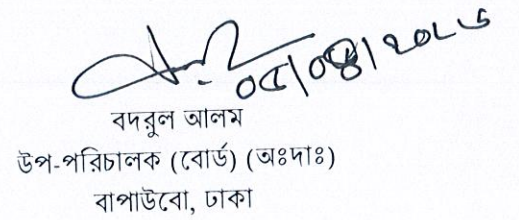 ০৫/০৪/২০২৬
বদরুল আলম
উপ-পরিচালক (বোর্ড) (অঃদাঃ)
বাপাউবো, ঢাকা